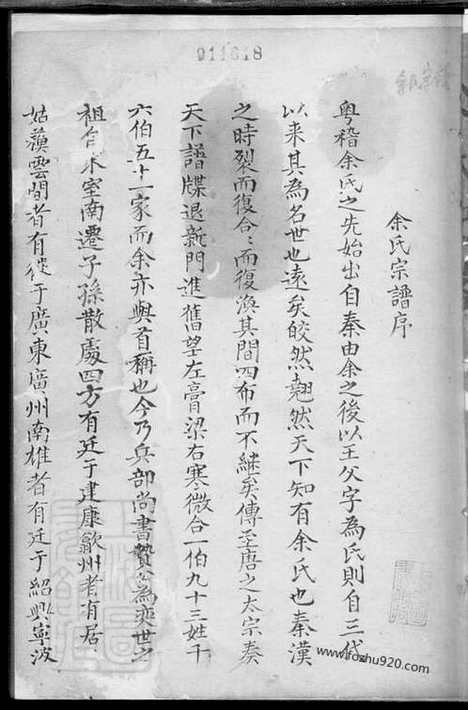 911618
余氏宗譜序
粤稽余氏之先始出自秦由余之後以王父字為氏則自三代
以来其為名世也遠矣皎然翹然天下知有余氏也秦漢
之時裂而復合﹕而復渙其間四布而不継矣傳至唐之太宗奏
天下譜牒退新門進舊望左膏梁右寒微合一伯九十三姓千
六伯五十一家而余亦與首稱也今乃兵部尚書贄公為奕世之
祖自宋室南遷子孫散處四方有迁于建康歙州者有居
姑蘓雲間者有從于廣東廣州南雄者有迁于紹興寧波
www.fozhu920.com